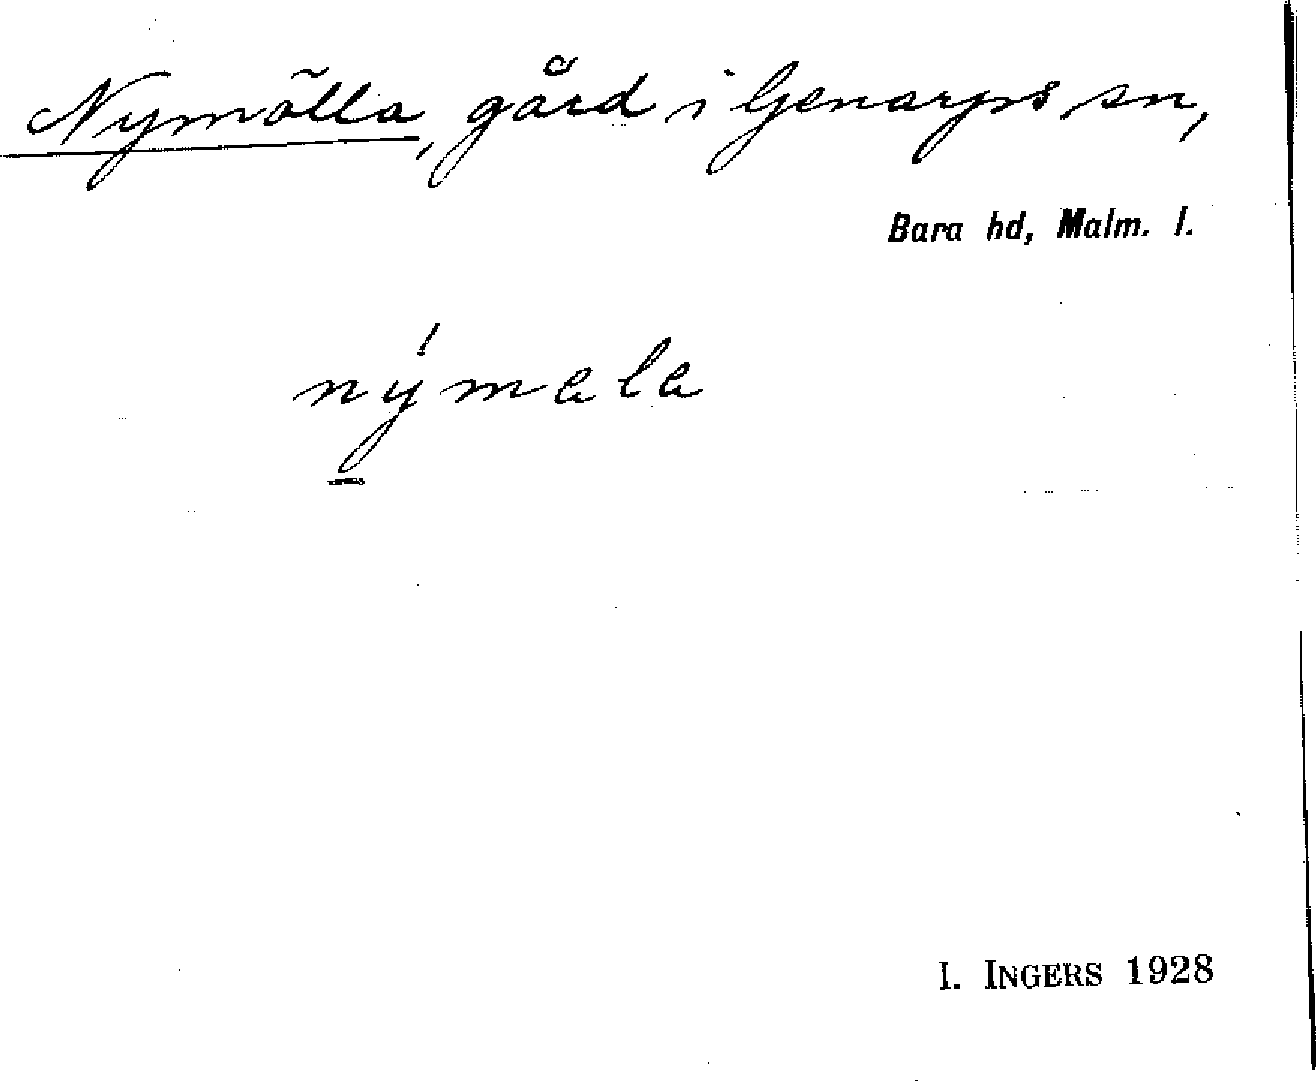 Nymölla, gård i Genarps sn,
Bara hd, Malm. l.
nýmala
I. INGERS 1928